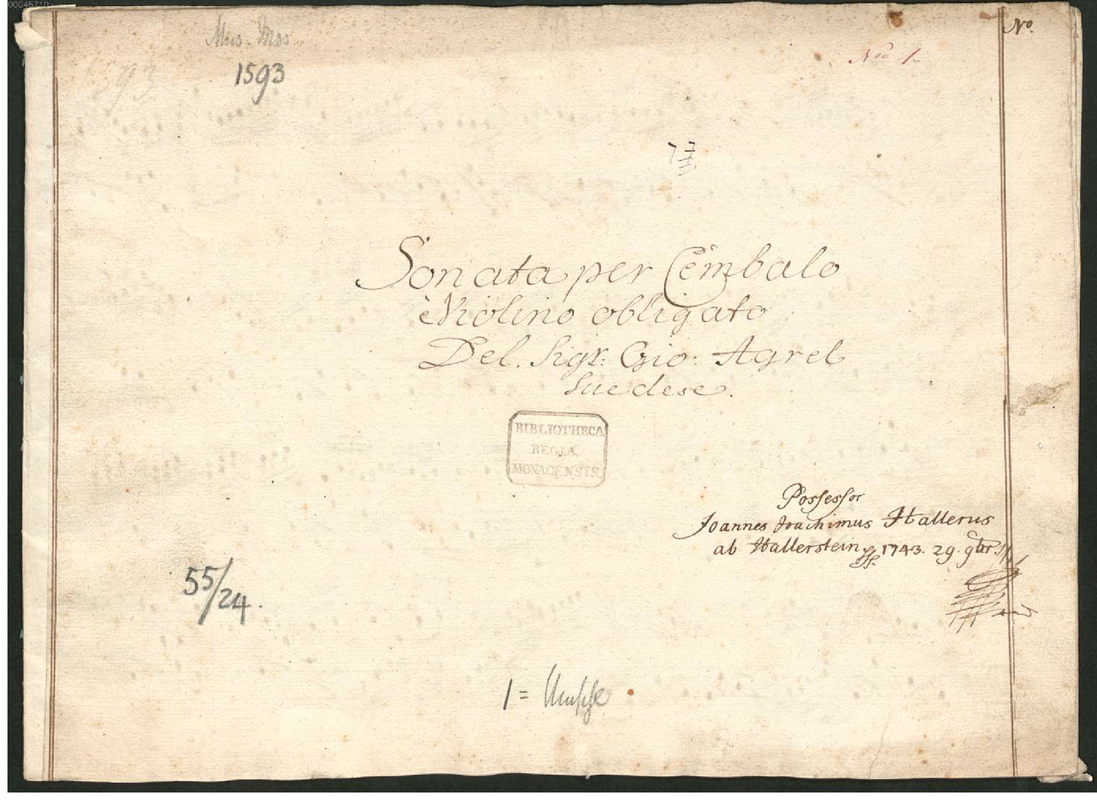 00046710
Mus. Mss.
1593
1593
Nro 1.
No.
77
Sonata per Cembalo
è Violino obligato
Del. Sigr: Gio: Agrel
Suedese.
BIBLIOTHECA
REGIA
MONACENSIS.
Possessor
Joannes Joachimus Hallerus
ab Hallerstein 1743. 29. 9br.
55/24.
1 =